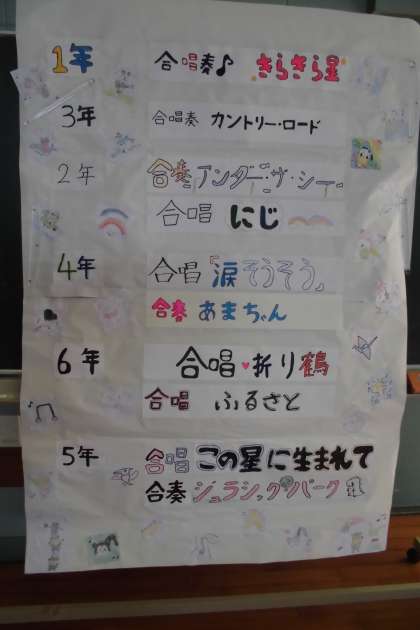 1年 合唱奏♪ きらきら星
3年 合唱奏 カントリー・ロード
2年 合奏 アンダー・ザ・シー
合唱 にじ
4年 合唱「涙そうそう」
合奏 あまちゃん
6年 合唱♥折り鶴
合唱 ふるさと
5年 合唱 この星に生まれて
合奏 ジュラシックパーク